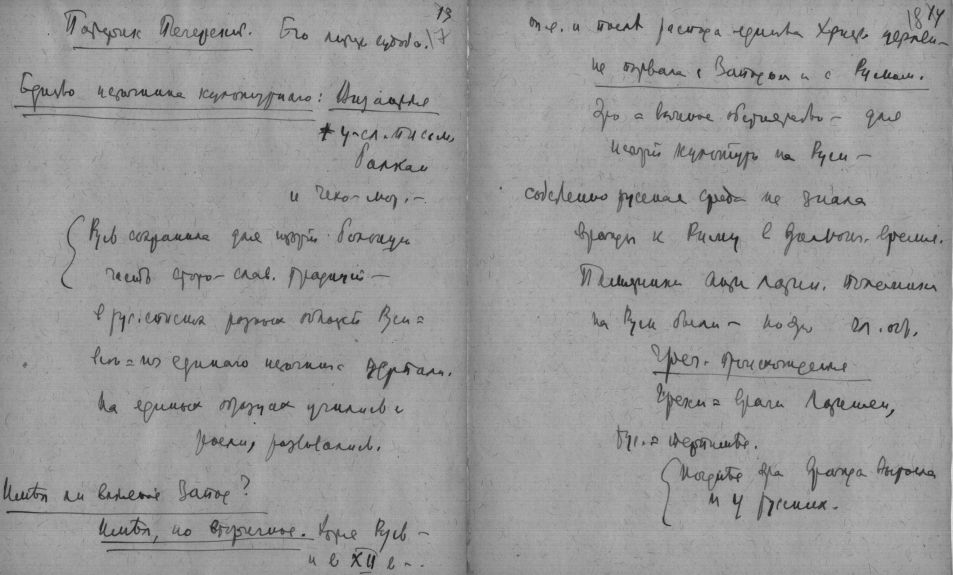 13
Патерик Печерский. Его лит. судьба. 17
Единство источника культурного: Византия
+ ц-сл. письм.
Балкан
и Чехо-мор. –
Русь сохранила для истории большую
часть старо-слав. традиций –
в рус. списках разных областей Руси =
все = из единого источника черпали.
На единых образцах учились и
росли, развивались.
Имел ли влияние Запад?
Имел, но вторичное. Хотя Русь –
и в XII в –.
18 14
и после раскола единства Христ. церкви –
не порвала с Западом и с Римом.
Это = важное обстоятельство – для
истории культуры на Руси –
собственно русская среда не знала
вражды к Риму в домонг. время.
Памятники анти латин. полемики
на Руси были – но
Греч. происхождения
Греки = враги латинян,
Рус. = терпимые.
Позднее эта вражда выросла
и у русских.